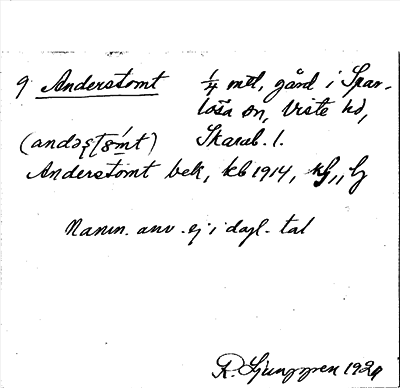 9 Anderstomt ¼ mtl, gård i Spar-
lösa sn, Viste hd,
Skarab. l.
Anderstomt bek, kb 1914,
Namn. anv. ej i dagl. tal
R. Ljunggren